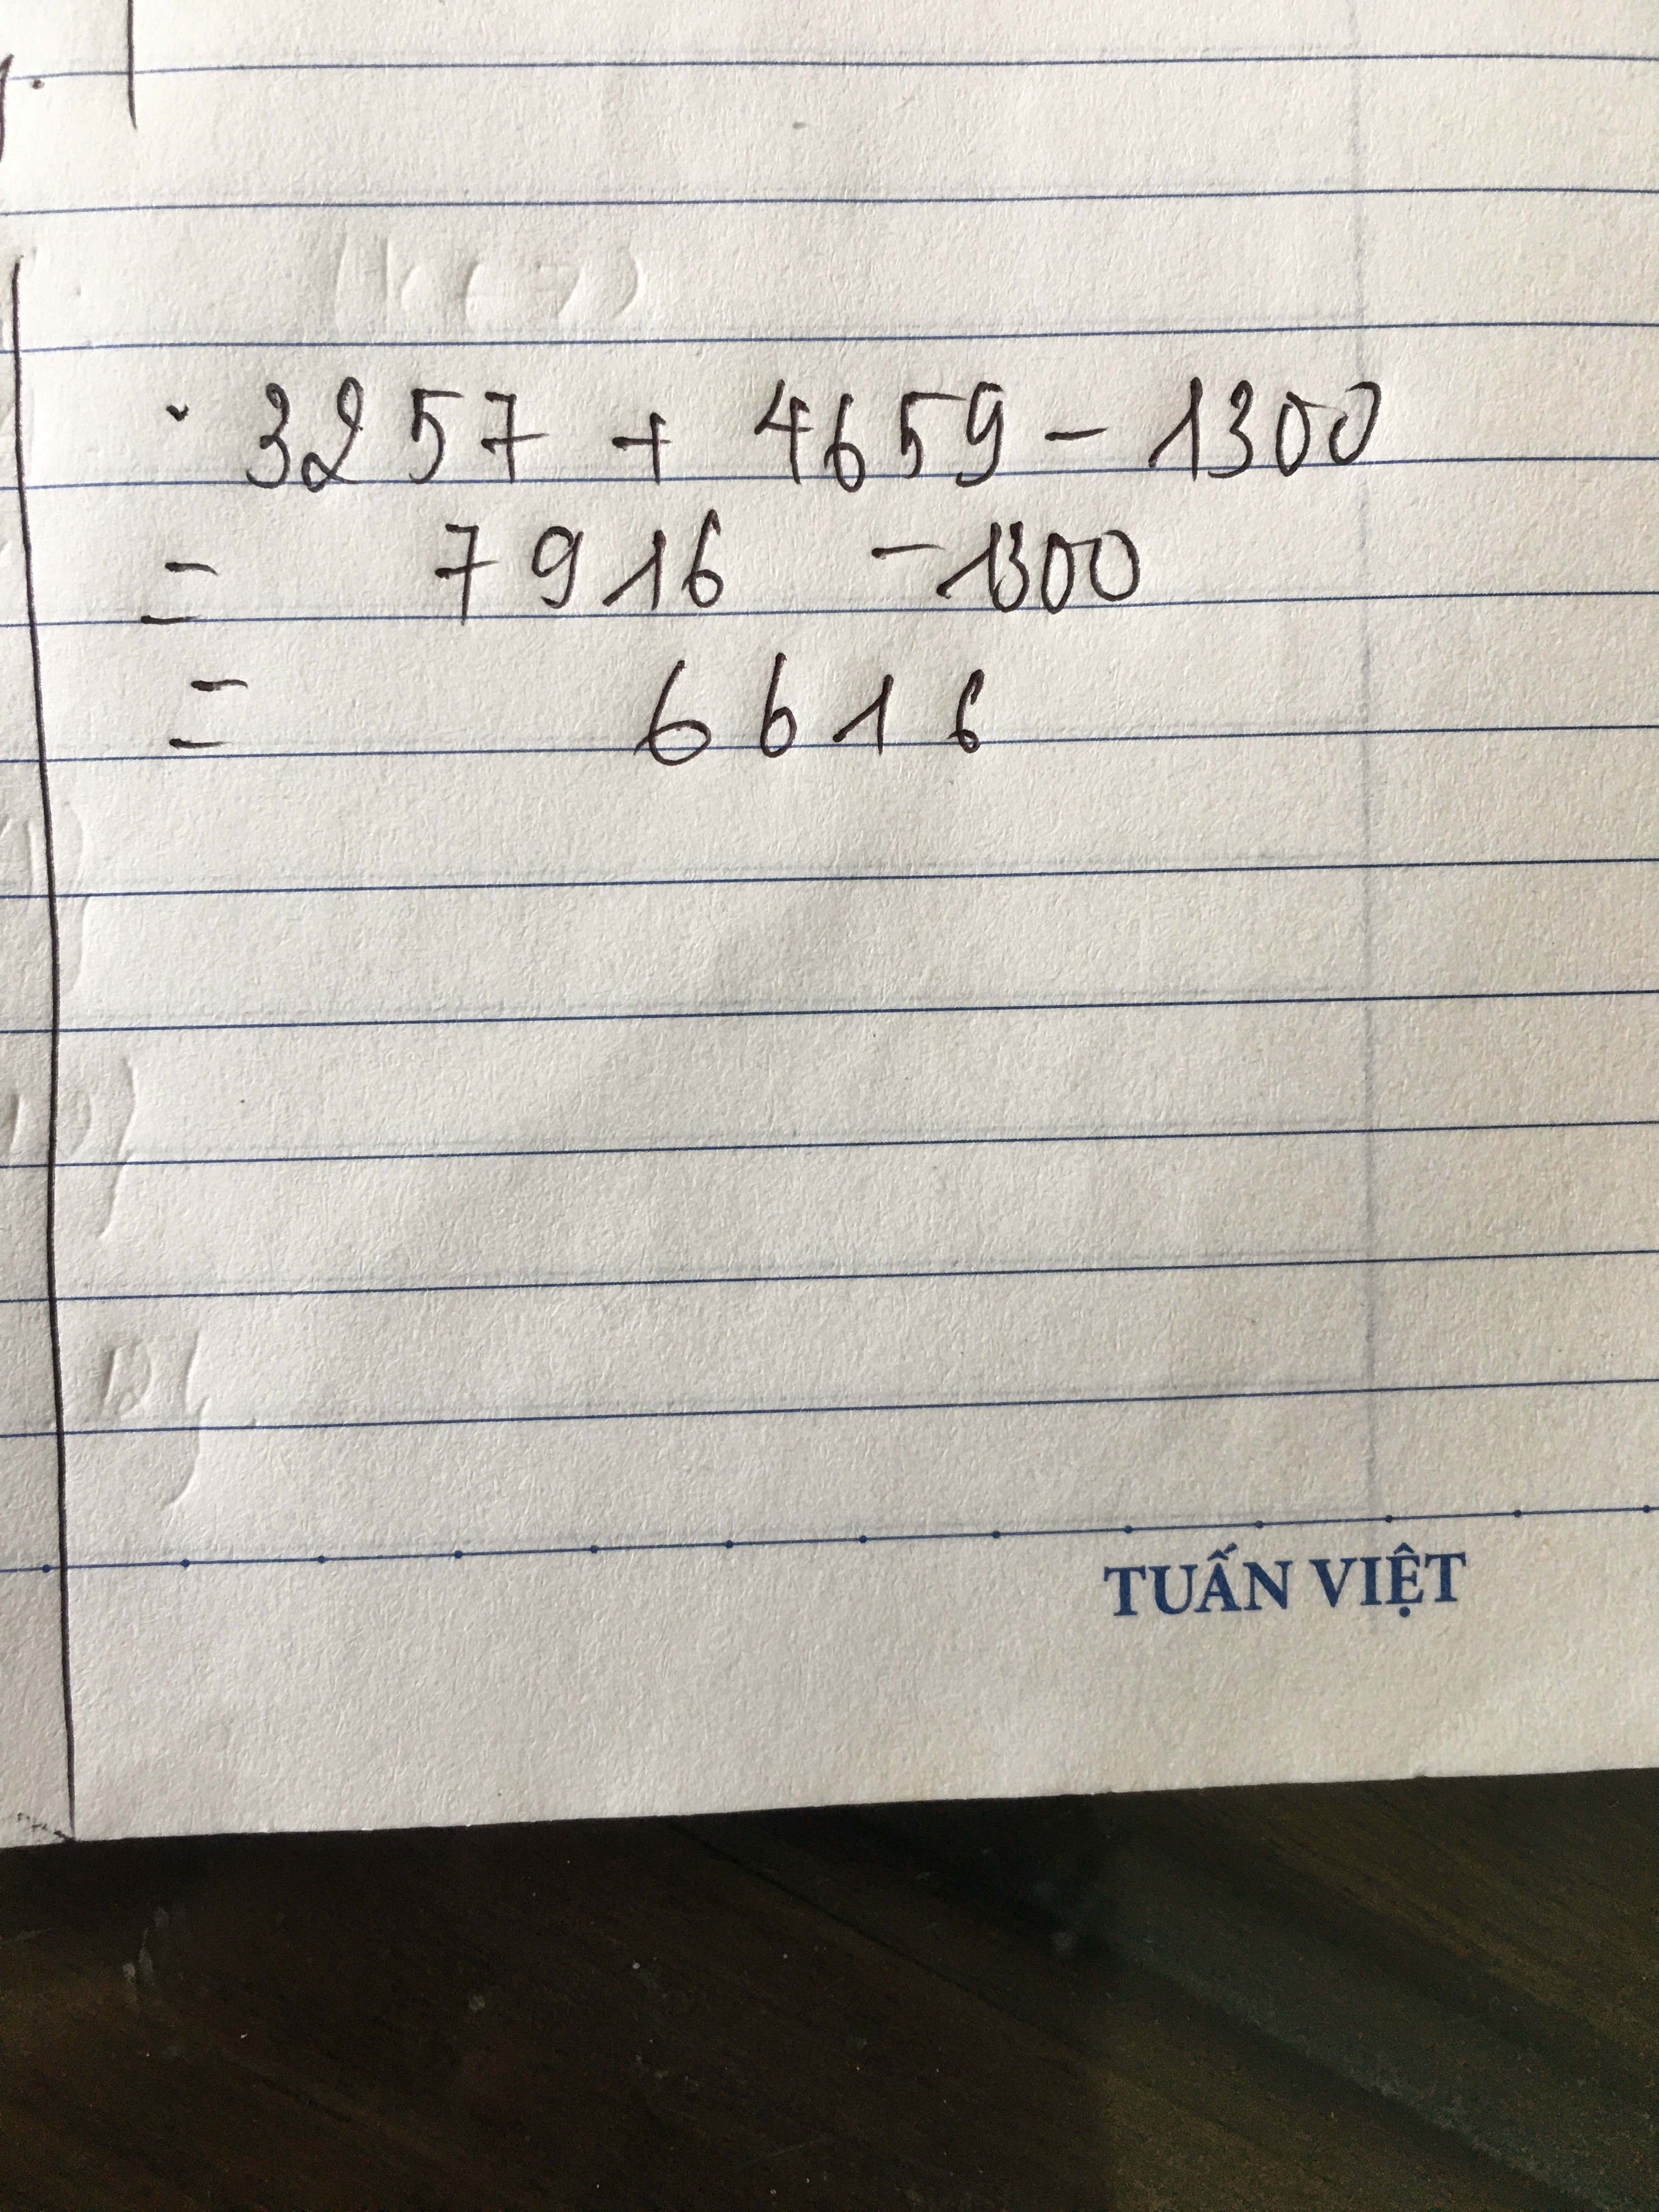 3257 + 4659 - 1300
= 7916 - 1300
= 6616
TUẤN VIỆT